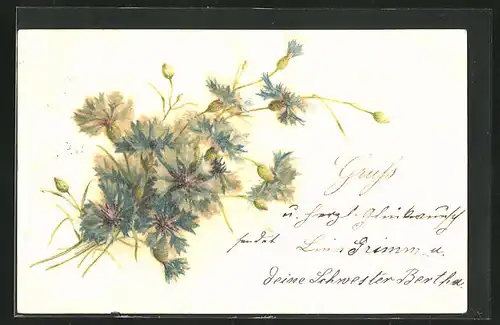 Gruß
u. herzl. Glückwunsch
sendet Lina Grimm u.
deine Schwester Bertha.